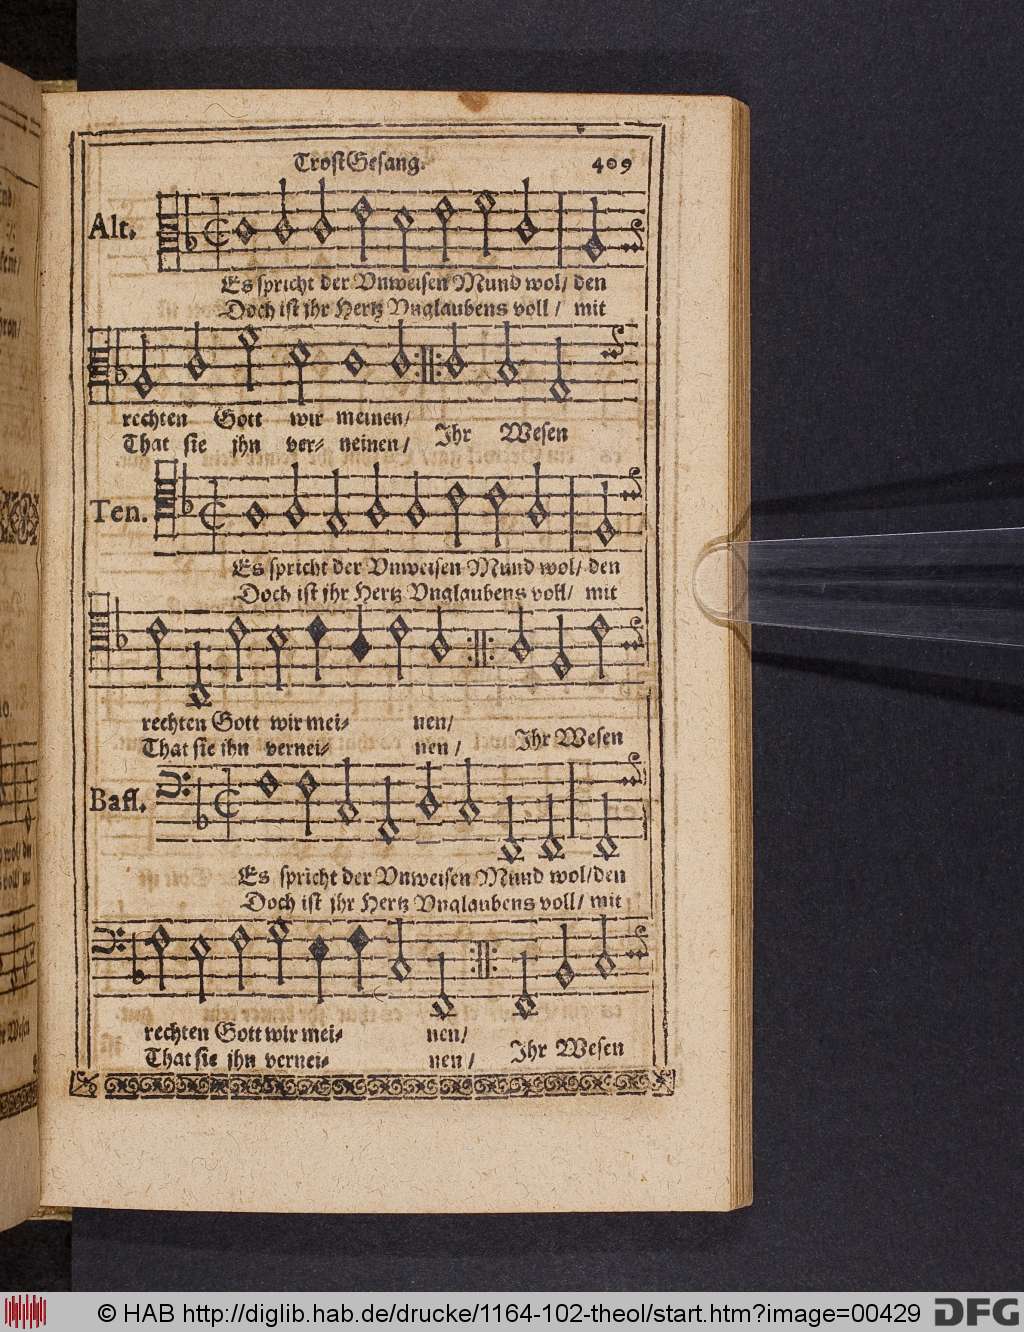 TrostGesang. 409
Alt.
Es spricht der Vnweisen Mund wol/ den
Doch ist jhr Hertz Vnglaubens voll / mit
rechten Gott wir meinen/
That sie jhn ver- neinen/ Jhr Wesen
Ten.
Es spricht der Vnweisen Mund wol/ den
Doch ist jhr Hertz Vnglaubens voll/ mit
rechten Gott wir mei- nen/
That sie ihn vernei- nen / Jhr Wesen
Bass.
Es spricht der Vnweisen Mund wol/den
Doch ist jhr Hertz Vnglaubens voll/ mit
rechten Gott wir mei- nen/
That sie jhn vernei- nen / Jhr Wesen
© HAB http://diglib.hab.de/drucke/1164-102-theol/start.htm?image=00429 DFG